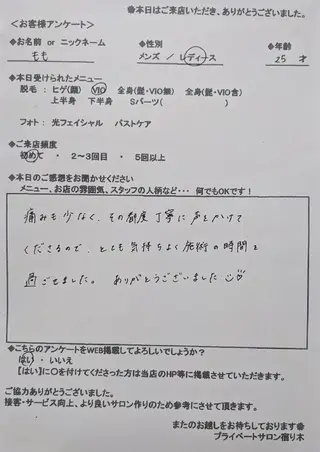 ●本日はご来店いただき、ありがとうございました。
＜お客様アンケート＞
◆お名前 or ニックネーム ◆性別 ◆年齢
もも メンズ / レディース 25 才
◆本日受けられたメニュー
脱毛：ヒゲ(顔) VIO 全身(髭・VIO無) 全身(髭・VIO含)
上半身 下半身 Sパーツ( )
フォト： 光フェイシャル バストケア
◆ご来店頻度
初めて ・ 2～3回目 ・ 5回以上
◆本日のご感想をお聞かせください
メニュー、お店の雰囲気、スタッフの人柄など・・・ 何でもOKです！
痛みも少なく、その都度丁寧に声をかけて
くださるので、とても気持ちよく施術の時間を
過ごせました。 ありがとうございました
◆こちらのアンケートをWEB掲載してよろしいでしょうか？
はい ・ いいえ
【はい】に○を付けてくださった方は当店のHP等に掲載させていただきます。
ご協力ありがとうございました。
接客・サービス向上、より良いサロン作りのため参考にさせて頂きます。
またのお越しをお待ちしております●
プライベートサロン宿り木